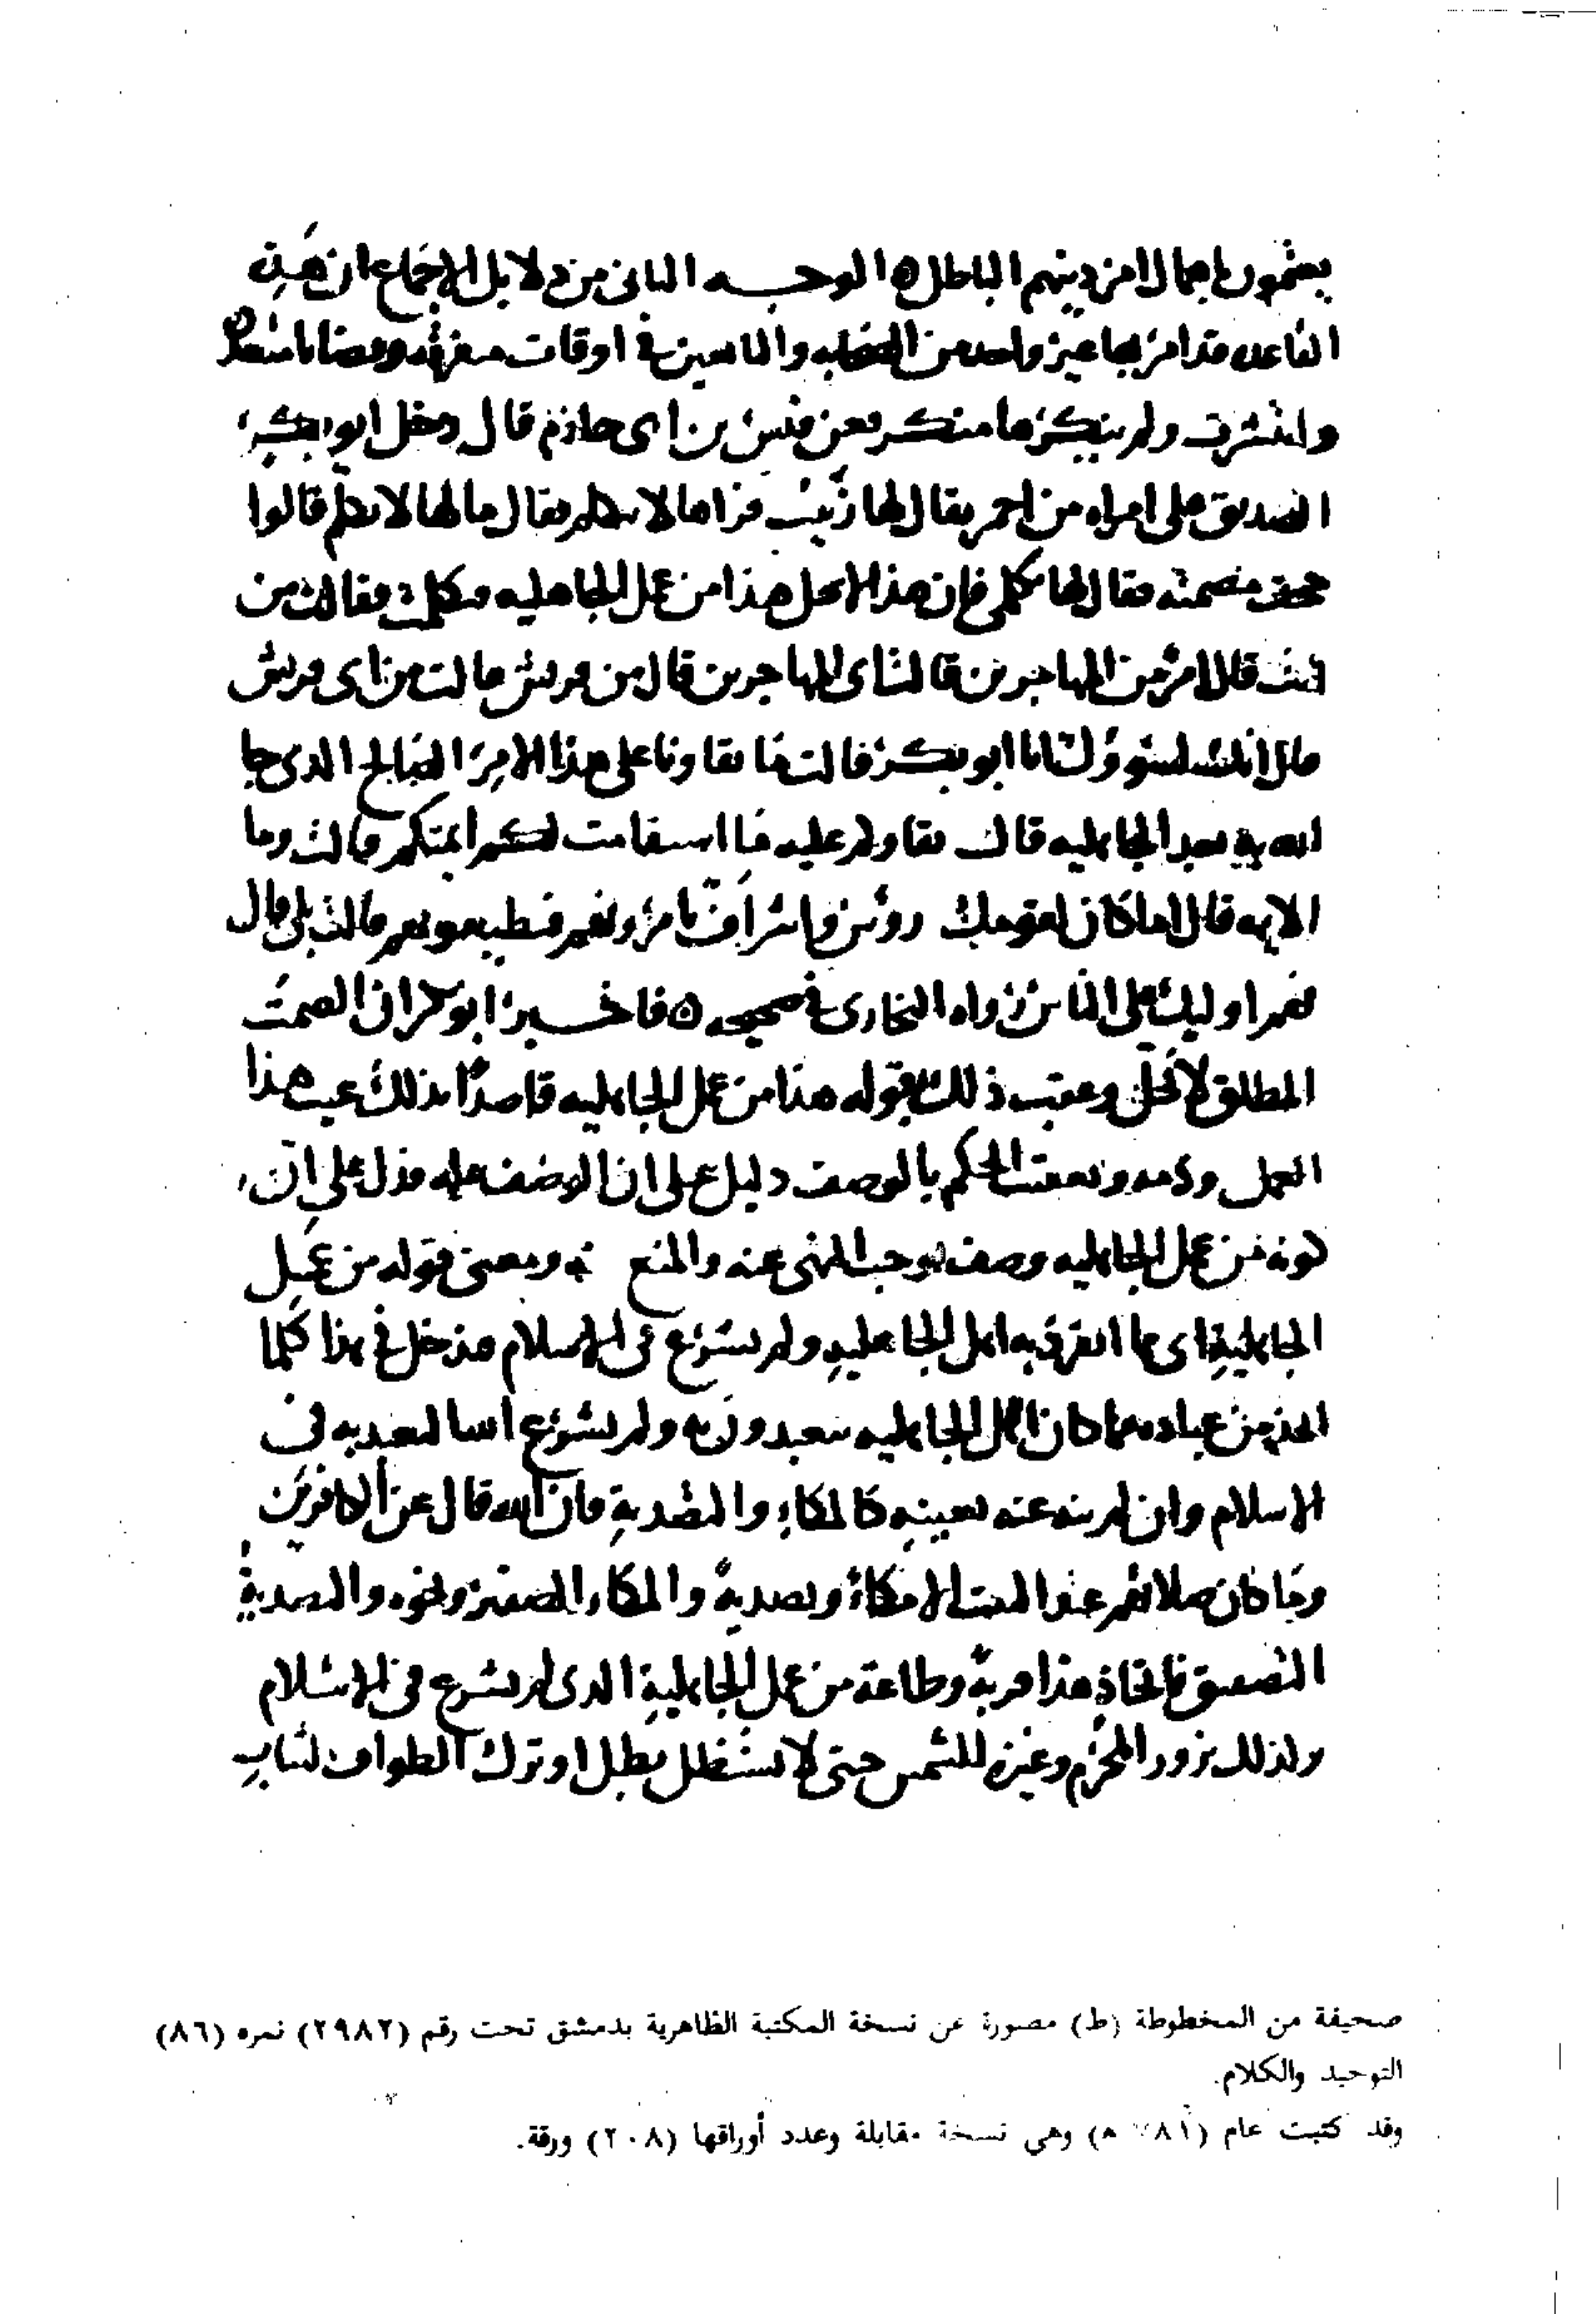 يعتمون اعمالا من دينهم الباطل ه الوجـــه الثاني من دلايل الاجماع ان هذه
القاعده قد امر بها غير واحد من الصحابه والتابعين في اوقات متفرقه وقضايا متعدده
وانتشرت ولم ينكرها منكر فعن قيس بن ابي حازم قال دخل ابو بكر
الصديق على امراه من احمس يقال لها زينب فراها لا تتكلم فقال ما لها لا تتكلم قالوا
حجت مصمته فقال لها تكلمي فان هذا لا يحل هذا من عمل الجاهليه فتكلمت فقالت من
انت قال امرؤ من المهاجرين قالت اي المهاجرين قال من قريش قالت من اي قريش
قال انك لسؤول انا ابو بكر قالت ما بقاونا على هذا الامر الصالح الذي جا
الله به بعد الجاهليه قال بقاوكم عليه ما استقامت لكم ايمتكم قالت وما
الايمه قال اما كان لقومك روس واشراف يامرونهم فيطيعونهم قالت بلى قال
فهم اوليك على الناس رواه البخاري في صحيحه ه فاخبر ابو بكر ان الصمت
المطلق لا يحل وعقب ذلك بقوله هذا من عمل الجاهليه قاصدا بذلك عيب هذا
العمل وذمه وتعقيب الحكم بالوصف دليل على ان الوصف عله فدل على ان
كونه من عمل الجاهليه وصف يوجب النهي عنه والمنع منه ومعنى قوله من عمل
الجاهلية اي مما انفرد به اهل الجاهليه ولم يشرع في الاسلام فيدخل في هذا كلما
اتخذ من عباده مما كان اهل الجاهليه يتعبدون به ولم يشرع الله التعبد به في
الاسلام وان لم ينه عنه بعينه كالمكاء والتصدية فان الله قال عن الكافرين
وما كان صلاتهم عند البيت الا مكاء وتصدية والمكاء الصفير ونحوه والتصدية
التصفيق فاتخاذ هذا قربة وطاعة من عمل الجاهلية الذي لم يشرع في الاسلام
وكذلك بروز المحرم وغيره للشمس حتى لا يستظل بظل او ترك الطواف بثياب
صحيفة من المخطوطة (ط) مصورة عن نسخة المكتبة الظاهرية بدمشق تحت رقم (٢٩٨٢) نمره (٨٦)
التوحيد والكلام.
وقد كتبت عام هـ) وهي نسخة مقابلة وعدد أوراقها (٢٠٨) ورقة.